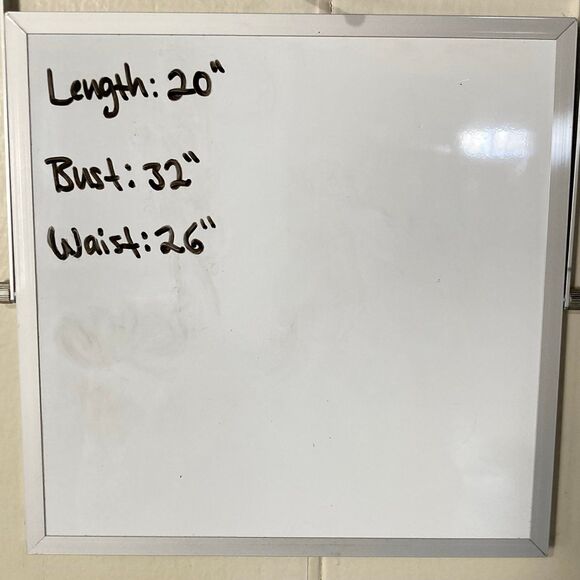 Length: 20"
Bust: 32"
Waist: 26"